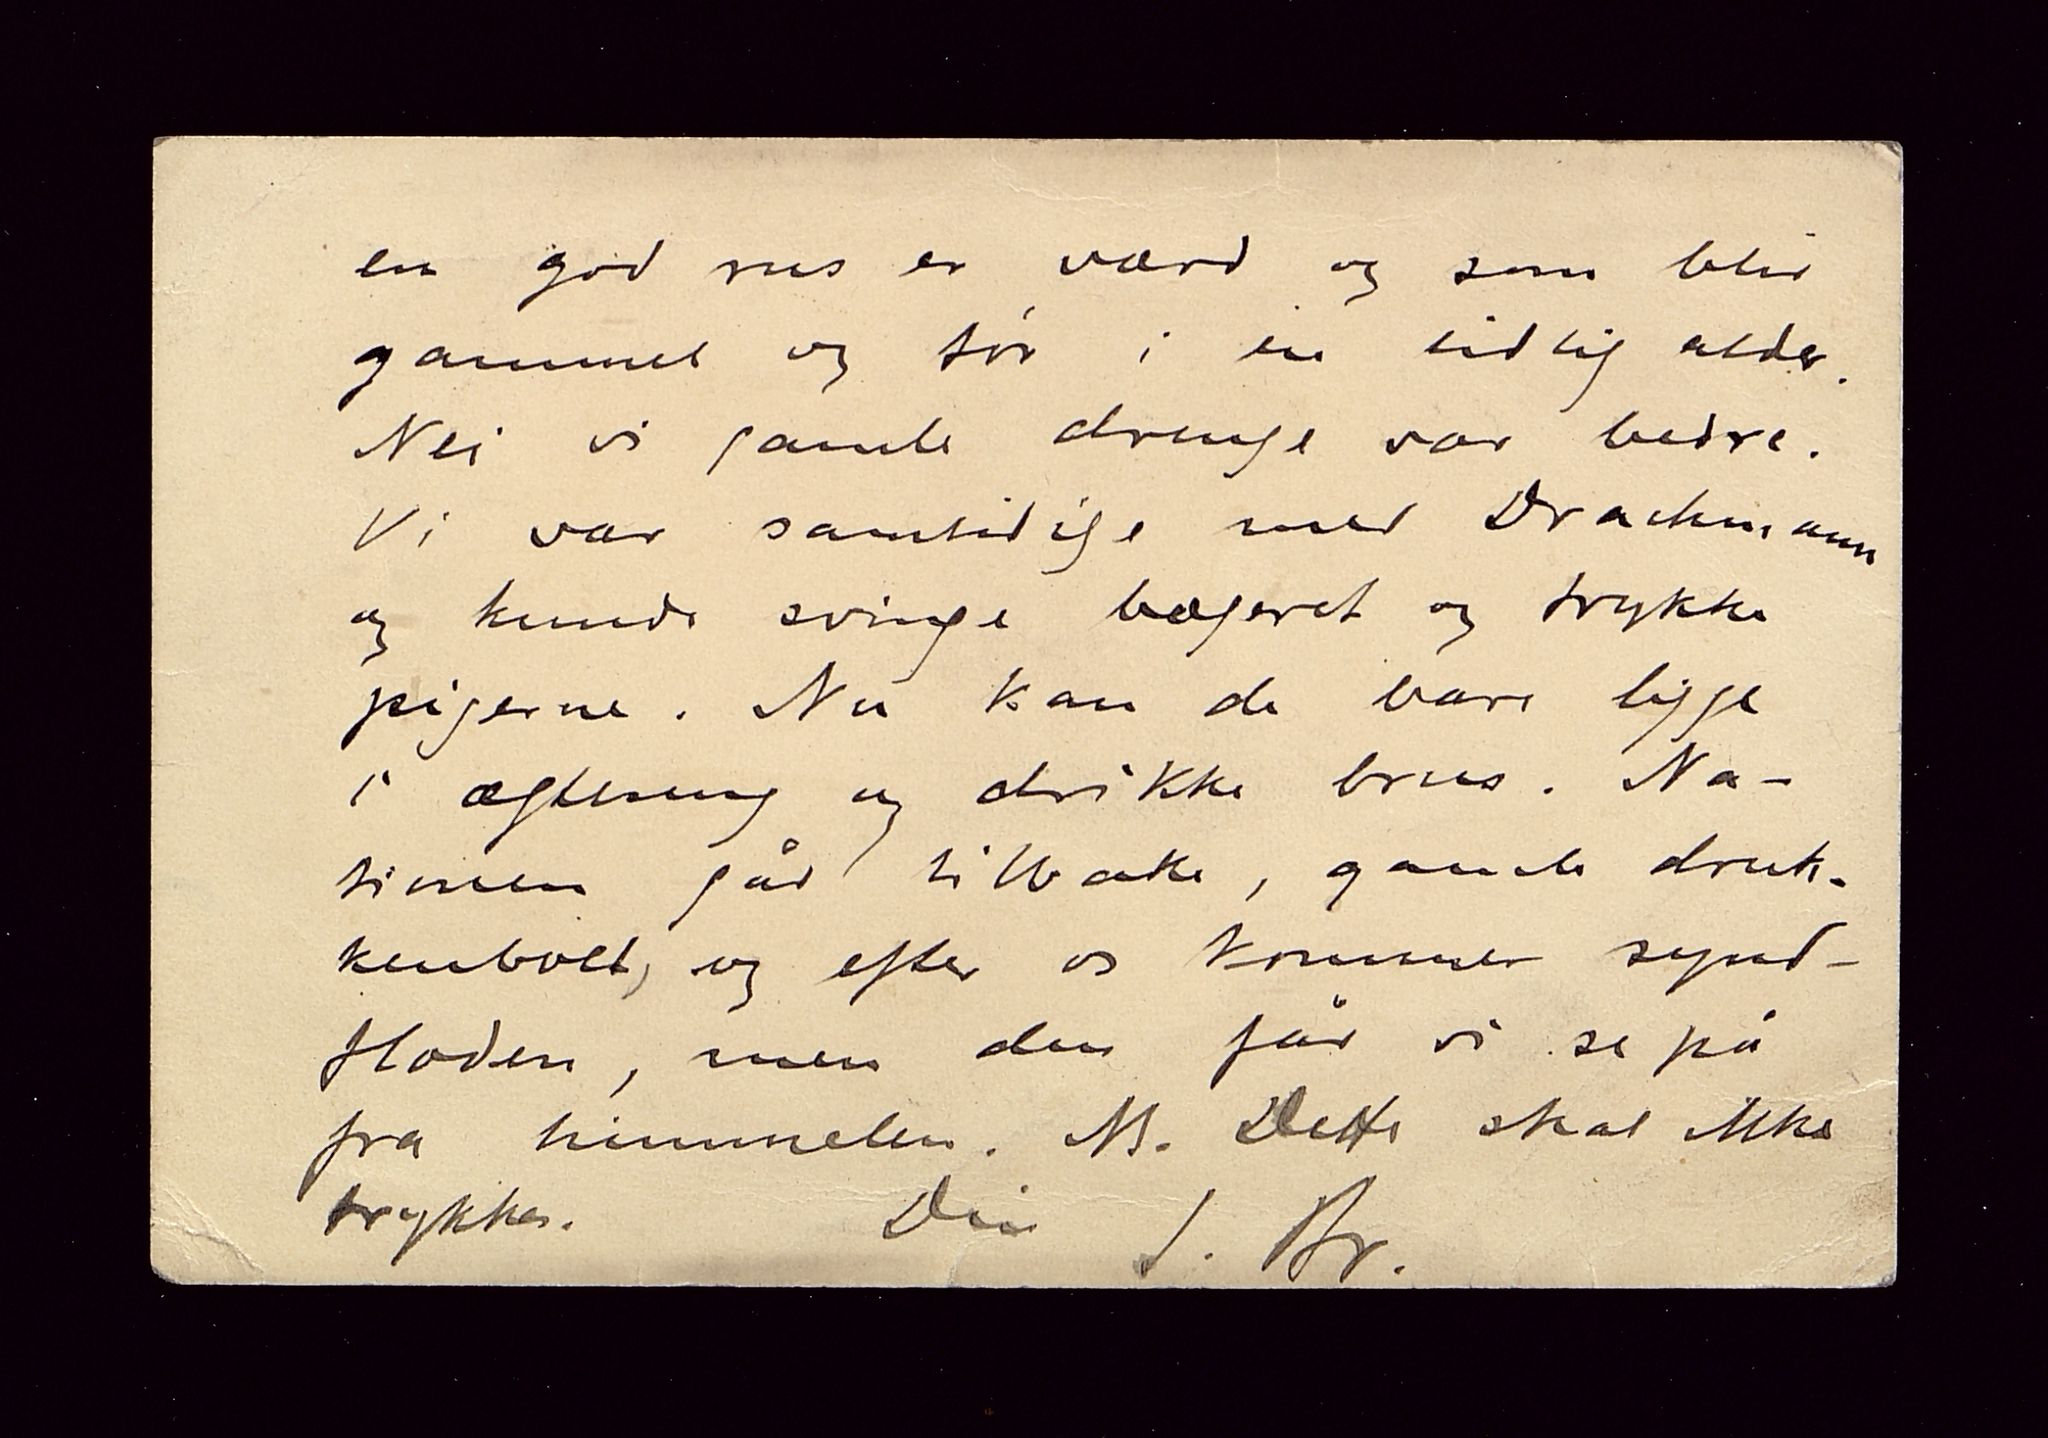 en god rus er værd og som blir
gammel og tør i en tidlig alder.
Nei vi gamle drenge var bedre.
Vi var samtidige med Drachmann
og kunde svinge bægeret og trykke
pigerne. Nu kan de bare ligge
i ægteseng og drikke brus. Na-
tionen går tilbake, gamle druk-
kenbolt, og efter os kommer synd-
floden, men den får vi se på
fra himmelen. NB. Dette skal ikke
trykkes. Din J. Br.